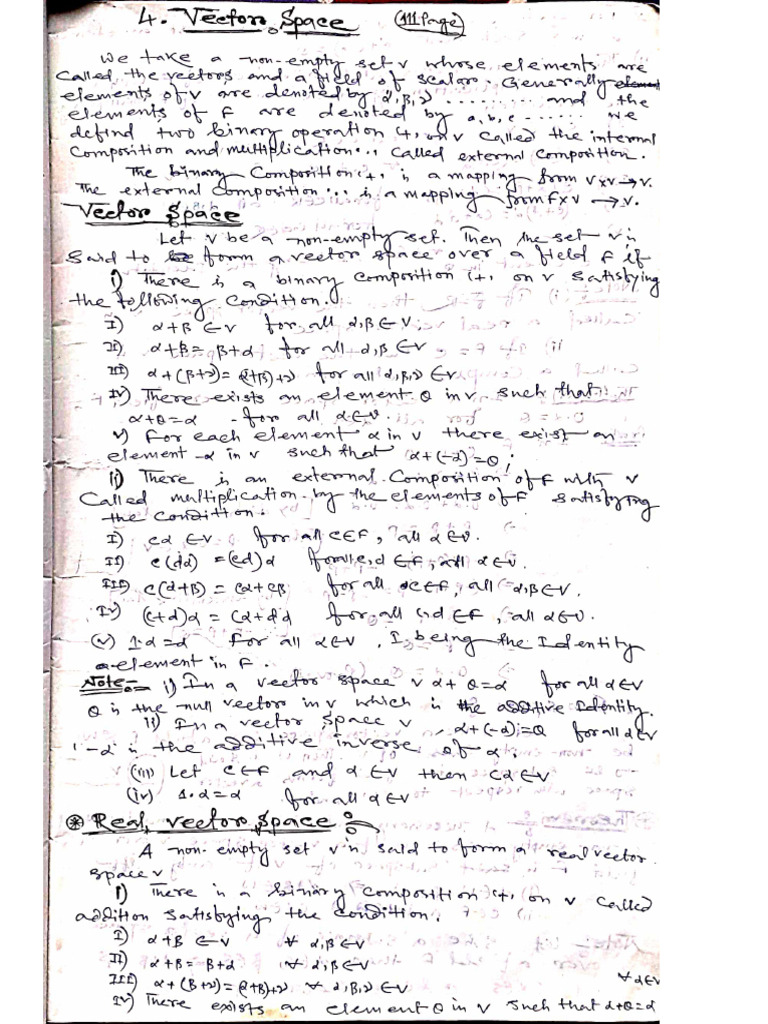 4. Vector Space (111 Page)
We take a non-empty set V whose elements are
called the vectors and a field of scalar. Generally
elements of V are denoted by α, β, γ ......... and the
elements of F are denoted by a, b, c ...... We
defind two binary operation '+' on V called the internal
composition and multiplication '.' called external composition.
The binary composition '+' is a mapping from V×V → V.
The external composition '.' is a mapping from F×V → V.
Vector Space
Let V be a non-empty set. Then the set V is
said to form a vector space over a field F if
i) There is a binary composition '+' on V satisfying
the following condition.
I) α+β ∈ V for all α, β ∈ V.
II) α+β = β+α for all α, β ∈ V
III) α+(β+γ) = (α+β)+γ for all α, β, γ ∈ V
IV) There exists an element θ in V such that
α+θ=α for all α ∈ V.
V) For each element α in V there exist an
element -α in V such that α+(-α)=θ
ii) There is an external composition of F with V
called multiplication by the elements of F satisfying
the condition.
I) cα ∈ V for all c ∈ F, all α ∈ V.
II) c(dα) = (cd)α for all c, d ∈ F, all α ∈ V.
III) c(α+β) = cα+cβ for all c ∈ F, all α, β ∈ V.
IV) (c+d)α = cα+dα for all c, d ∈ F, all α ∈ V.
(v) 1.α=α for all α ∈ V, 1 being the Identity
element in F.
Note:- i) In a vector space V α+θ=α for all α ∈ V
θ is the null vector in V which is the additive Identity.
ii) In a vector space V, α+(-α)=θ for all α ∈ V
'-α' is the additive inverse of α.
(iii) Let c ∈ F and α ∈ V then cα ∈ V
(iv) 1.α=α for all α ∈ V
⊛ Real vector space :-
A non-empty set V is said to form a real vector
space V
i) There is a binary composition '+' on V called
addition satisfying the condition.
I) α+β ∈ V ∀ α, β ∈ V
II) α+β = β+α ∀ α, β ∈ V
III) α+(β+γ) = (α+β)+γ ∀ α, β, γ ∈ V
IV) There exists an element θ in V such that α+θ=α ∀ α ∈ V